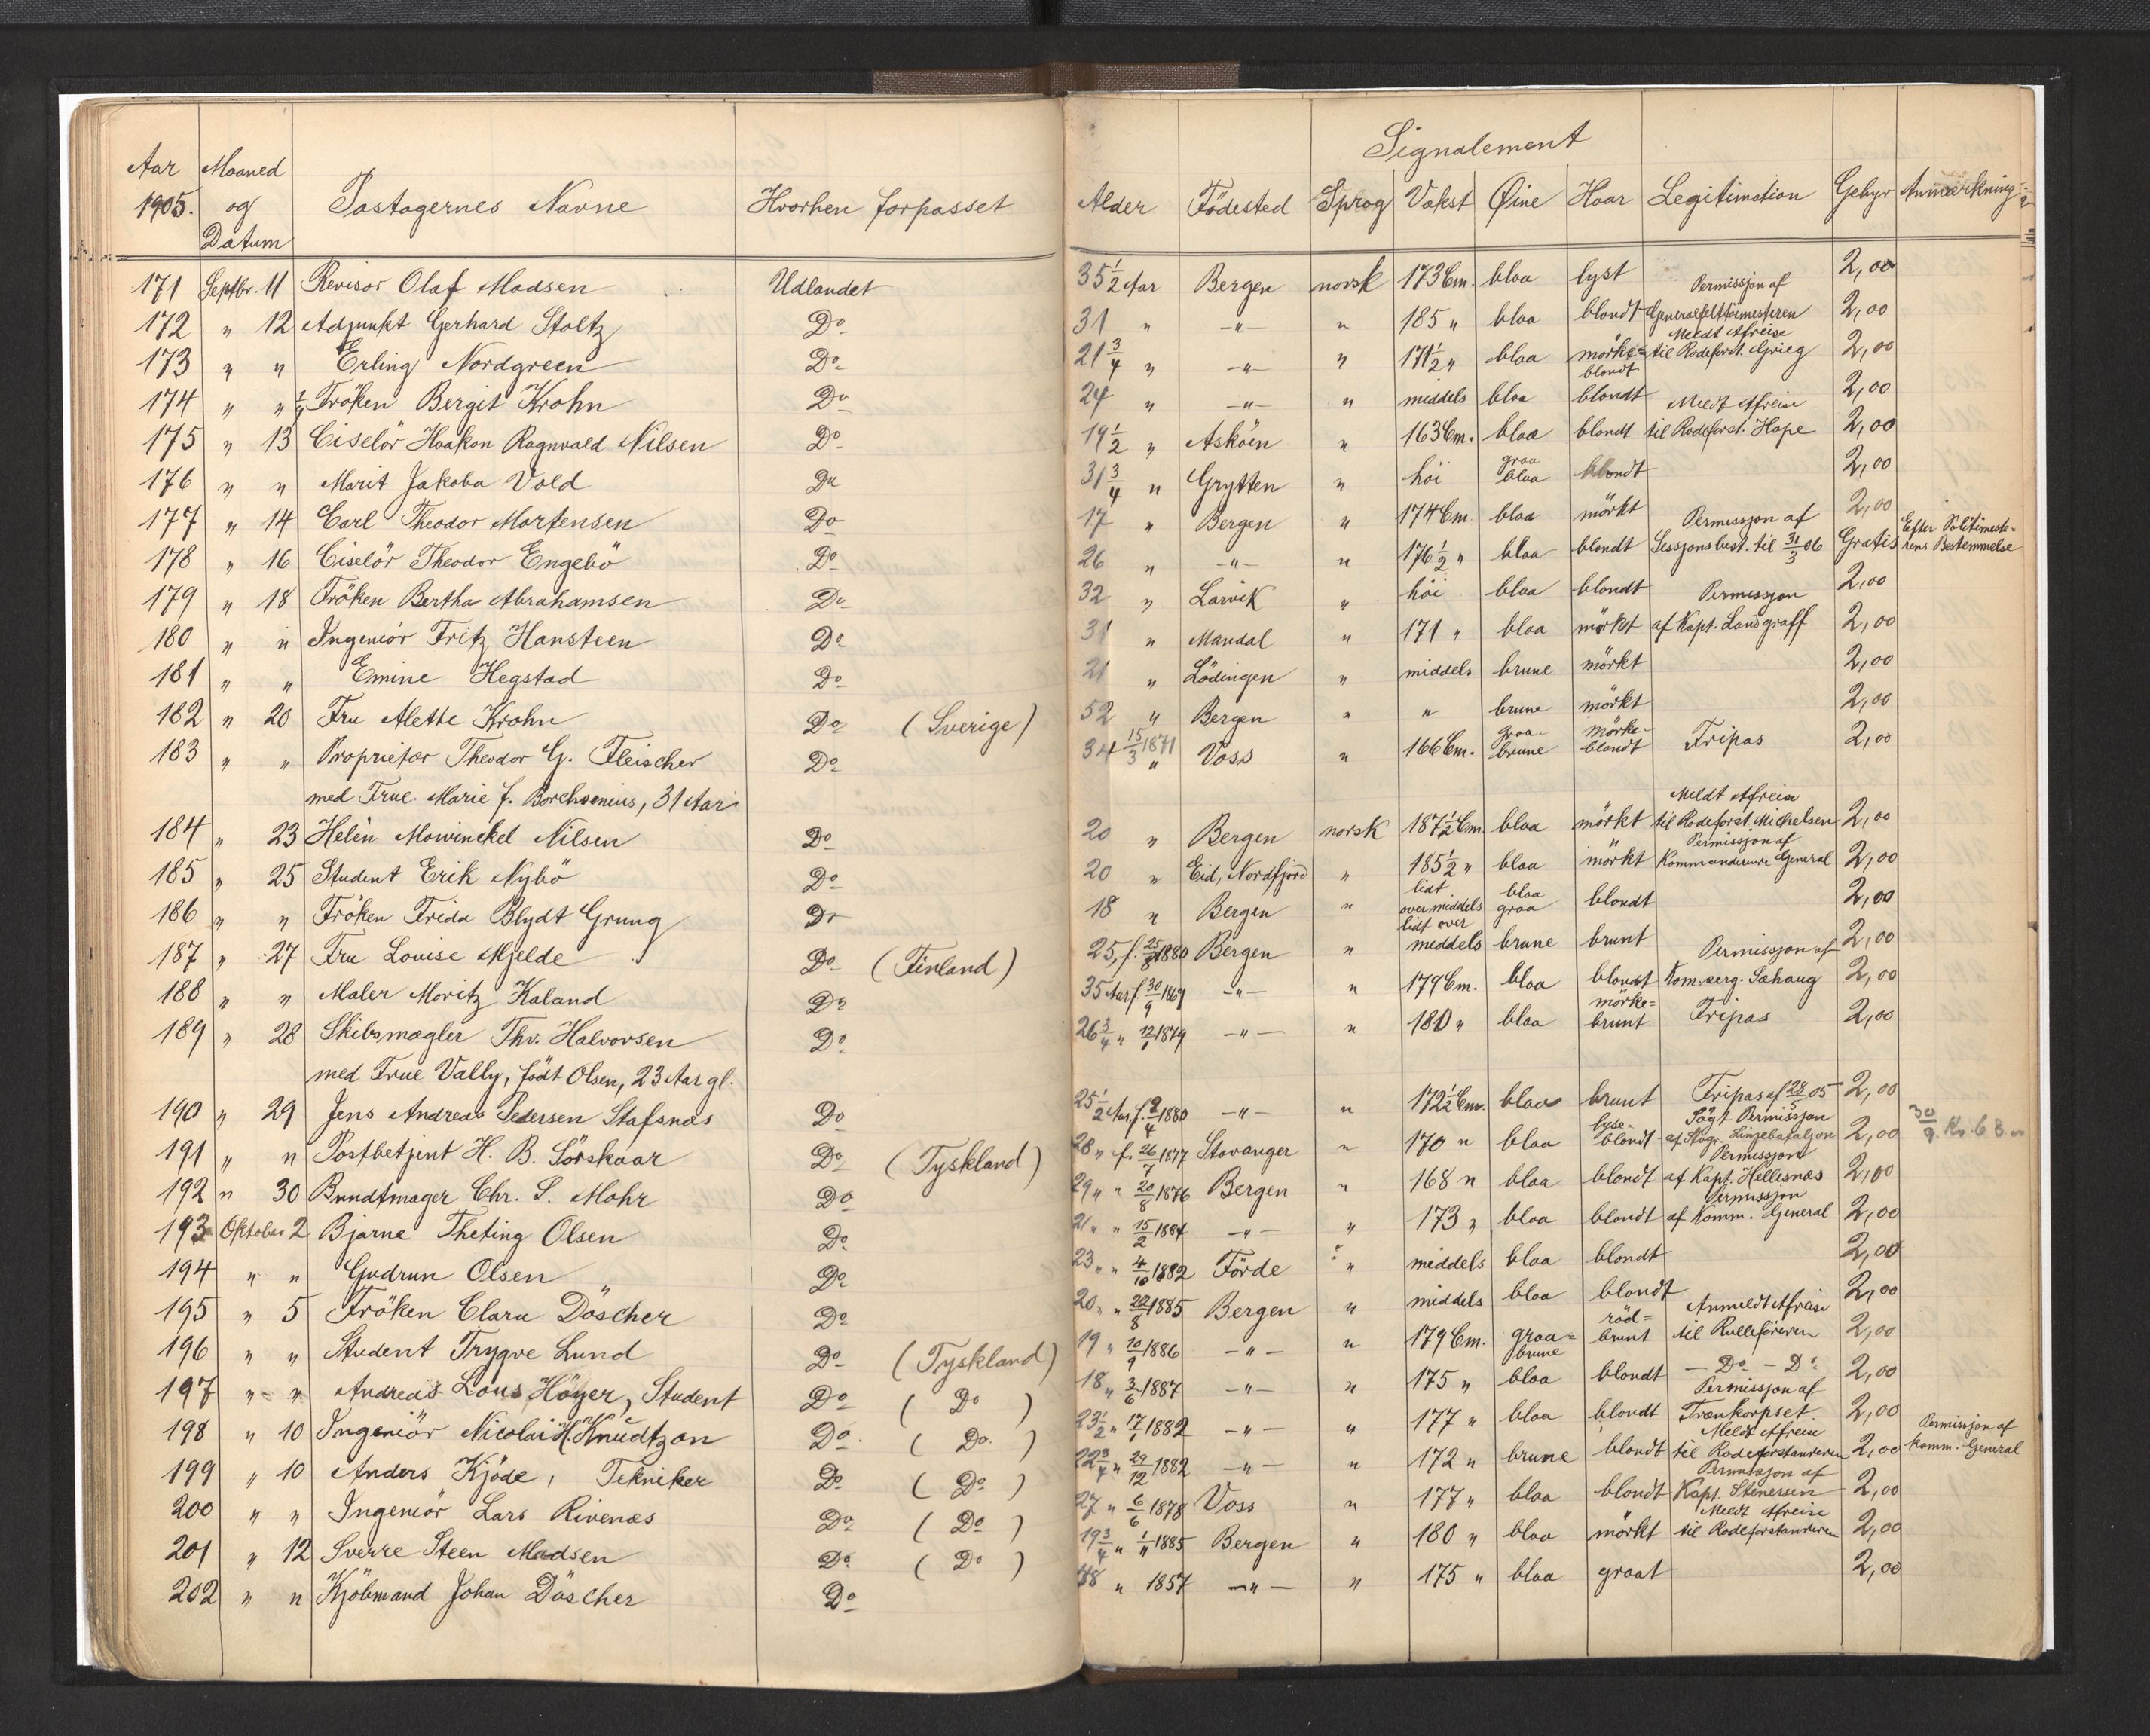 Aar 1905. Maaned og Datum Pastagernes Navne Hvorhen forpasset
Signalement
Alder Födested Sprog Vækst Øine Haar Legitimation Gebyr Anmærkning
171 Septbr. 11 Revisor Olaf Madsen Udlandet 35 1/2 Aar Bergen norsk 173 Cm. blaa lyst 2,00
172 " 12 Adjunkt Gerhard Stoltz Do 31 " -"- " 185 " blaa blondt Permissjon af Generalfelttöimesteren 2,00
173 " " Erling Nordgreen Do 21 3/4 " -"- " 171 1/2 " blaa mörke= blondt Meldt Afreise til Rodeforst. Grieg 2,00
174 " " Fröken Bergit Krohn Do 24 " -"- " middels blaa blondt 2,00
175 " 13 Ciselör Haakon Ragnvald Nilsen Do 19 1/2 " Asköen " 163 Cm. blaa blondt Meldt Afreise til Rodeforst. Hope 2,00
176 " " Marit Jakoba Vold Do 31 3/4 " Grytten " höi graa blaa blondt 2,00
177 " 14 Carl Theodor Mortensen Do 17 " Bergen " 174 Cm blaa mörkt 2,00
178 " 16 Ciselör Theodor Engebö Do 26 " -"- " 176 1/2 " blaa blondt Permissjon af Sessjonsbest. til 31/3 06 Gratis Efter Politimeste- rens Bestemmelse
179 " 18 Fröken Bertha Abrahamsen Do 32 " Larvik " höi blaa blondt 2,00
180 " " Ingeniör Fritz Hansteen Do 31 " Mandal " 171 " blaa mörkt Permissjon af Kapt. Landgraff 2,00
181 " " Emine Hegstad Do 21 " Lödingen " middels brune mörkt 2,00
182 " 20 Fru Alette Krohn Do (Sverige) 52 " Bergen " " brune mörkt 2,00
183 " " Proprietær Theodor G. Fleischer Do 34 15/3 1871 " Voss " 166 Cm. graa- brune mörke- blondt Fripas 2,00
med Frue Marie f. Borchsenius, 31 Aar
184 " 23 Helên Mowinckel Nilsen Do 20 " Bergen norsk 187 1/2 Cm blaa mörkt Meldt Afreise til Rodeforst. Michelsen 2,00
185 " 25 Student Erik Nybö Do 20 " Eid, Nordfjord " 185 1/2 " blaa mörkt Permissjon af Kommanderende General 2,00
186 " " Fröken Frida Blydt Grung Do 18 " Bergen " lidt over middels blaa graa blondt 2,00
187 " 27 Fru Lovise Mjelde Do (Finland) 25, f. 25/8 1880 Bergen " lidt over middels brune brunt 2,00
188 " " Maler Moritz Kaland Do 35 Aar f. 30/9 1869 -"- " 179 Cm. blaa blondt Permissjon af Kom.serg. Sahaug 2,00
189 " 28 Skibsmægler Thv. Halvorsen Do 26 3/4 " 12/1 1879 -"- " 180 " blaa mörke= brunt Fripas 2,00
med Frue Vally, födt Olsen, 23 Aar gl.
190 " 29 Jens Andreas Pedersen Stafsnæs Do 25 1/2 Aar f. 9/4 1880 -"- " 172 1/2 Cm. blaa brunt Fripas af 28/5 05 2,00
191 " " Postbetjent H. B. Sörskaar Do (Tyskland) 28 " f. 26/7 1877 Stavanger " 170 " blaa lyse- blondt Sögt Permissjon af Stvgr. Linjebataljon 2,00
192 " 30 Bundtmager Chr. S. Mohr Do 29 " " 20/8 1876 Bergen " 168 " blaa blondt Permissjon af Kapt. Hellesnæs 2,00
193 Oktober 2 Bjarne Theting Olsen Do 21 " " 15/2 1884 -"- " 173 " blaa blondt Permissjon af Komm. General 2,00
194 " " Gudrun Olsen Do 23 " " 4/10 1882 Förde " middels blaa blondt 2,00
195 " 5 Fröken Clara Döscher Do 20 " " 22/8 1885 Bergen " middels blaa blondt 2,00
196 " " Student Trygve Lund Do (Tyskland) 19 " 10/9 1886 -"- " 179 Cm. graa= brune röd= brunt Anmeldt Afreise til Rulleföreren 2,00
197 " " Andreas Lous Höyer, Student Do (Do) 18 " 3/6 1887 -"- " 175 " blaa blondt - Do - Do 2,00
198 " 10 Ingeniör Nicolai H. Knudtzon Do (Do) 23 1/2 " 17/1 1882 -"- " 177 " blaa blondt Permissjon af Trænkorpset. 2,00
199 " 10 Anders Kjöde, Tekniker Do (Do) 22 3/4 " 29/12 1882 -"- " 172 " brune blondt Meldt Afreise til Rodeforstanderen 2,00 Permissjon af Komm. General
200 " " Ingeniör Lars Rivenæs Do (Do) 27 " 6/6 1878 Voss " 177 " blaa blondt Permissjon af Kapt. Stenersen 2,00
201 " 12 Sverre Steen Madsen Do (Do) 19 3/4 " 1/11 1885 Bergen " 180 " blaa mörkt Meldt Afreise til Rodeforstanderen 2,00
202 " " Kjöbmand Johan Döscher Do 48 " 1857 -"- " 175 " blaa graat 2,00